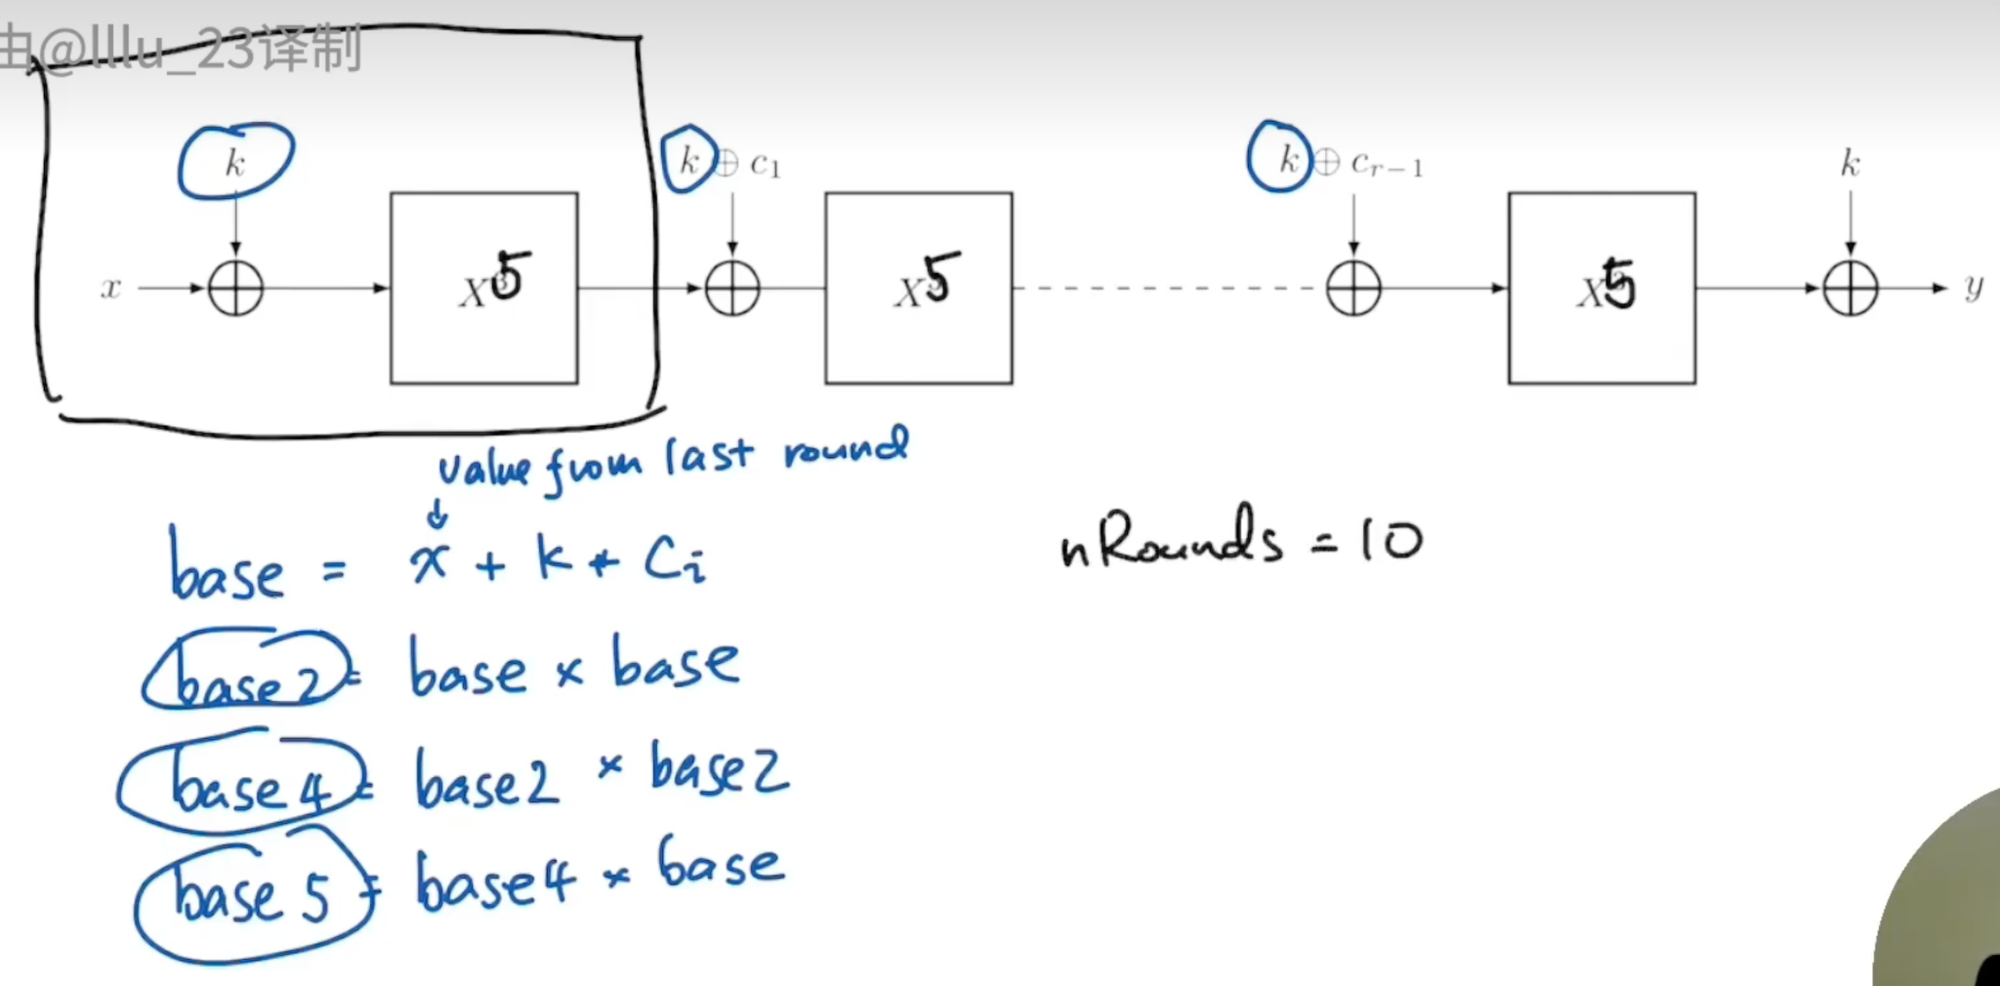 由@lllu_23译制
k
k ⊕ c₁
k ⊕ cᵣ₋₁
k
x
X5
X5
X5
y
value from last round
base = x + k + Ci
nRounds = 10
base2 = base × base
base4 = base2 × base2
base5 = base4 × base